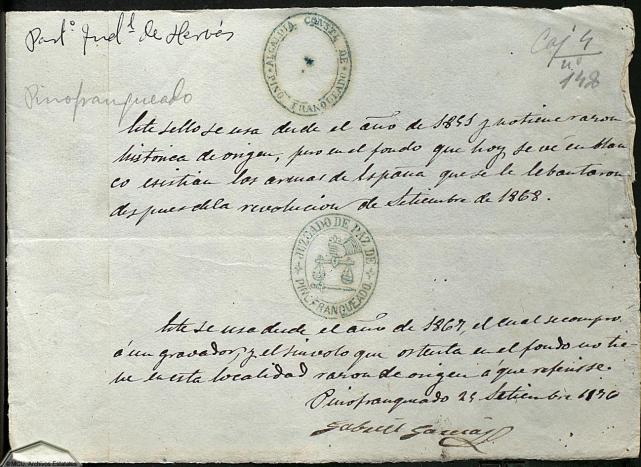 Part.º Jud.l de Hervás
Caj 4
nº 148
ALCALDIA CONSTL DE
PINO FRANQUEADO
Pinofranqueado
Este sello se usa desde el año de 1851 y no tiene razon
historica de origen, pero en el fondo que hoy se vé en blan
co esistian las armas de España que se le lebantaron
despues de la revolucion de Setiembre de 1868.
JUZGADO DE PAZ DE
PINOFRANQUEADO.
Este se usa desde el año de 1867, el cual se compro
á un gravador, y el sinvolo que ostenta en el fondo no tie
ne en esta localidad razon de origen a que refirirse.
Pinofranqueado 25 Setiembre 1876
Gabriel Garcia
© MCD. Archivos Estatales